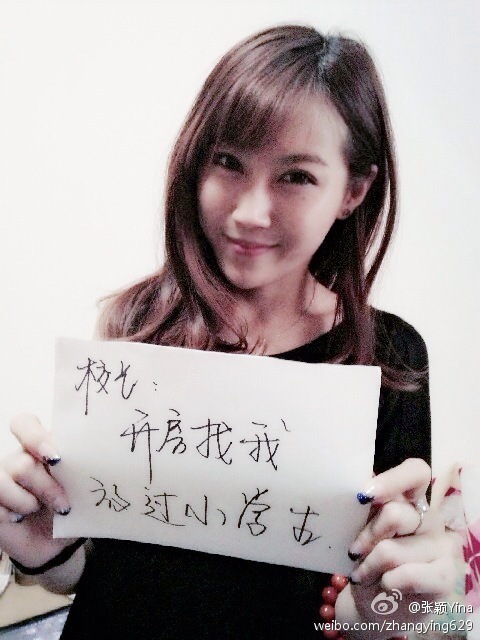 校长：
开房找我
放过小学生.
@张颖Yina
weibo.com/zhangying629